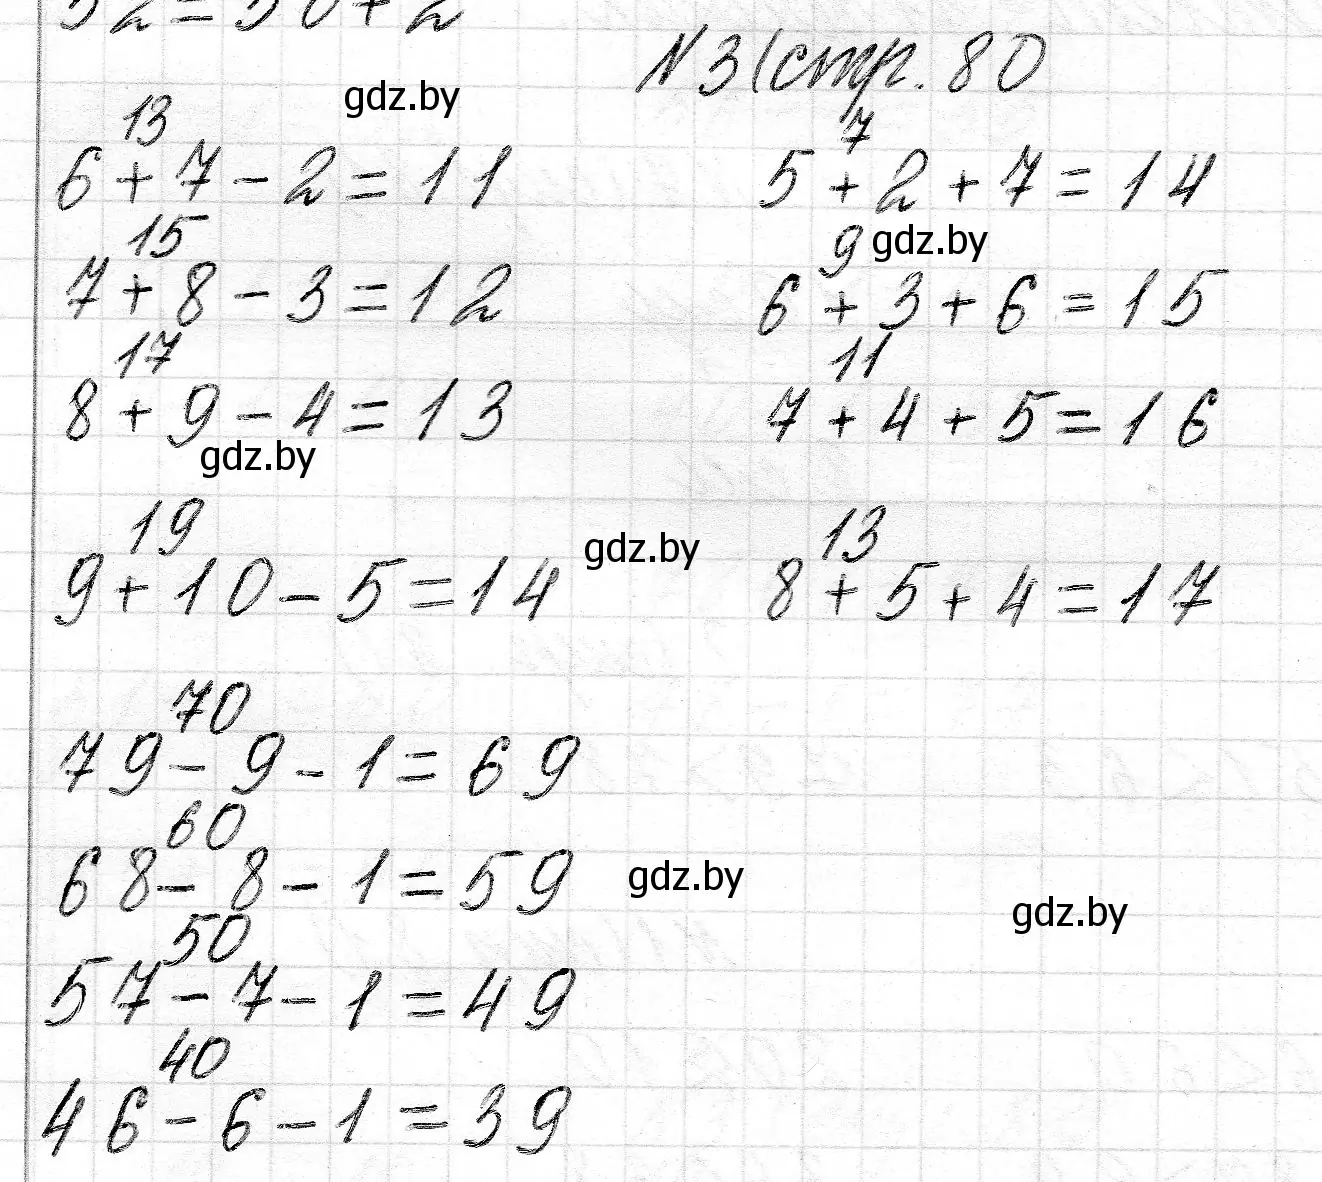 52=50+2
N 3 (стр. 80
gdz.by
13 7
6+7-2=11 5+2+7=14
15 9 gdz.by
7+8-3=12 6+3+6=15
17 11
8+9-4=13 7+4+5=16
gdz.by
19 13
gdz.by
9+10-5=14 8+5+4=17
70
79-9-1=69
60
68-8-1=59
gdz.by
gdz.by
50
57-7-1=49
40
46-6-1=39